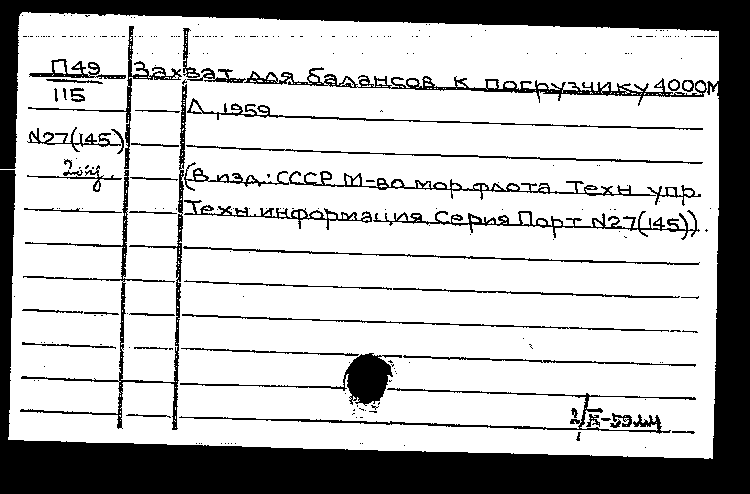 П49 Захват для балансов к погрузчику 4000М
115 Л., 1959
N27(145)
2 экз. (В изд.: СССР. М-во мор. флота. Техн. упр.
Техн. информация. Серия Порт N27(145)).